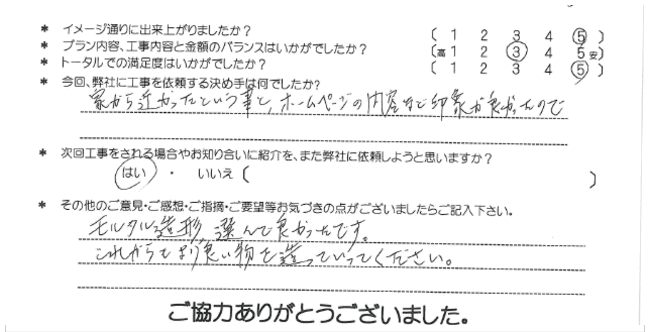 * イメージ通りに出来上がりましたか? ( 1 2 3 4 5 )
* プラン内容、工事内容と金額のバランスはいかがでしたか? (高 1 2 3 4 5 安)
* トータルでの満足度はいかがでしたか? ( 1 2 3 4 5 )
* 今回、弊社に工事を依頼する決め手は何でしたか?
家から近かったという事と、ホームページの内容など印象が良かったので
* 次回工事をされる場合やお知り合いに紹介を、また弊社に依頼しようと思いますか?
はい ・ いいえ ( )
* その他のご意見・ご感想・ご指摘・ご要望等お気づきの点がございましたらご記入下さい。
モルタル造形 選んで良かったです。
これからもより良い物を造っていってください。
ご協力ありがとうございました。